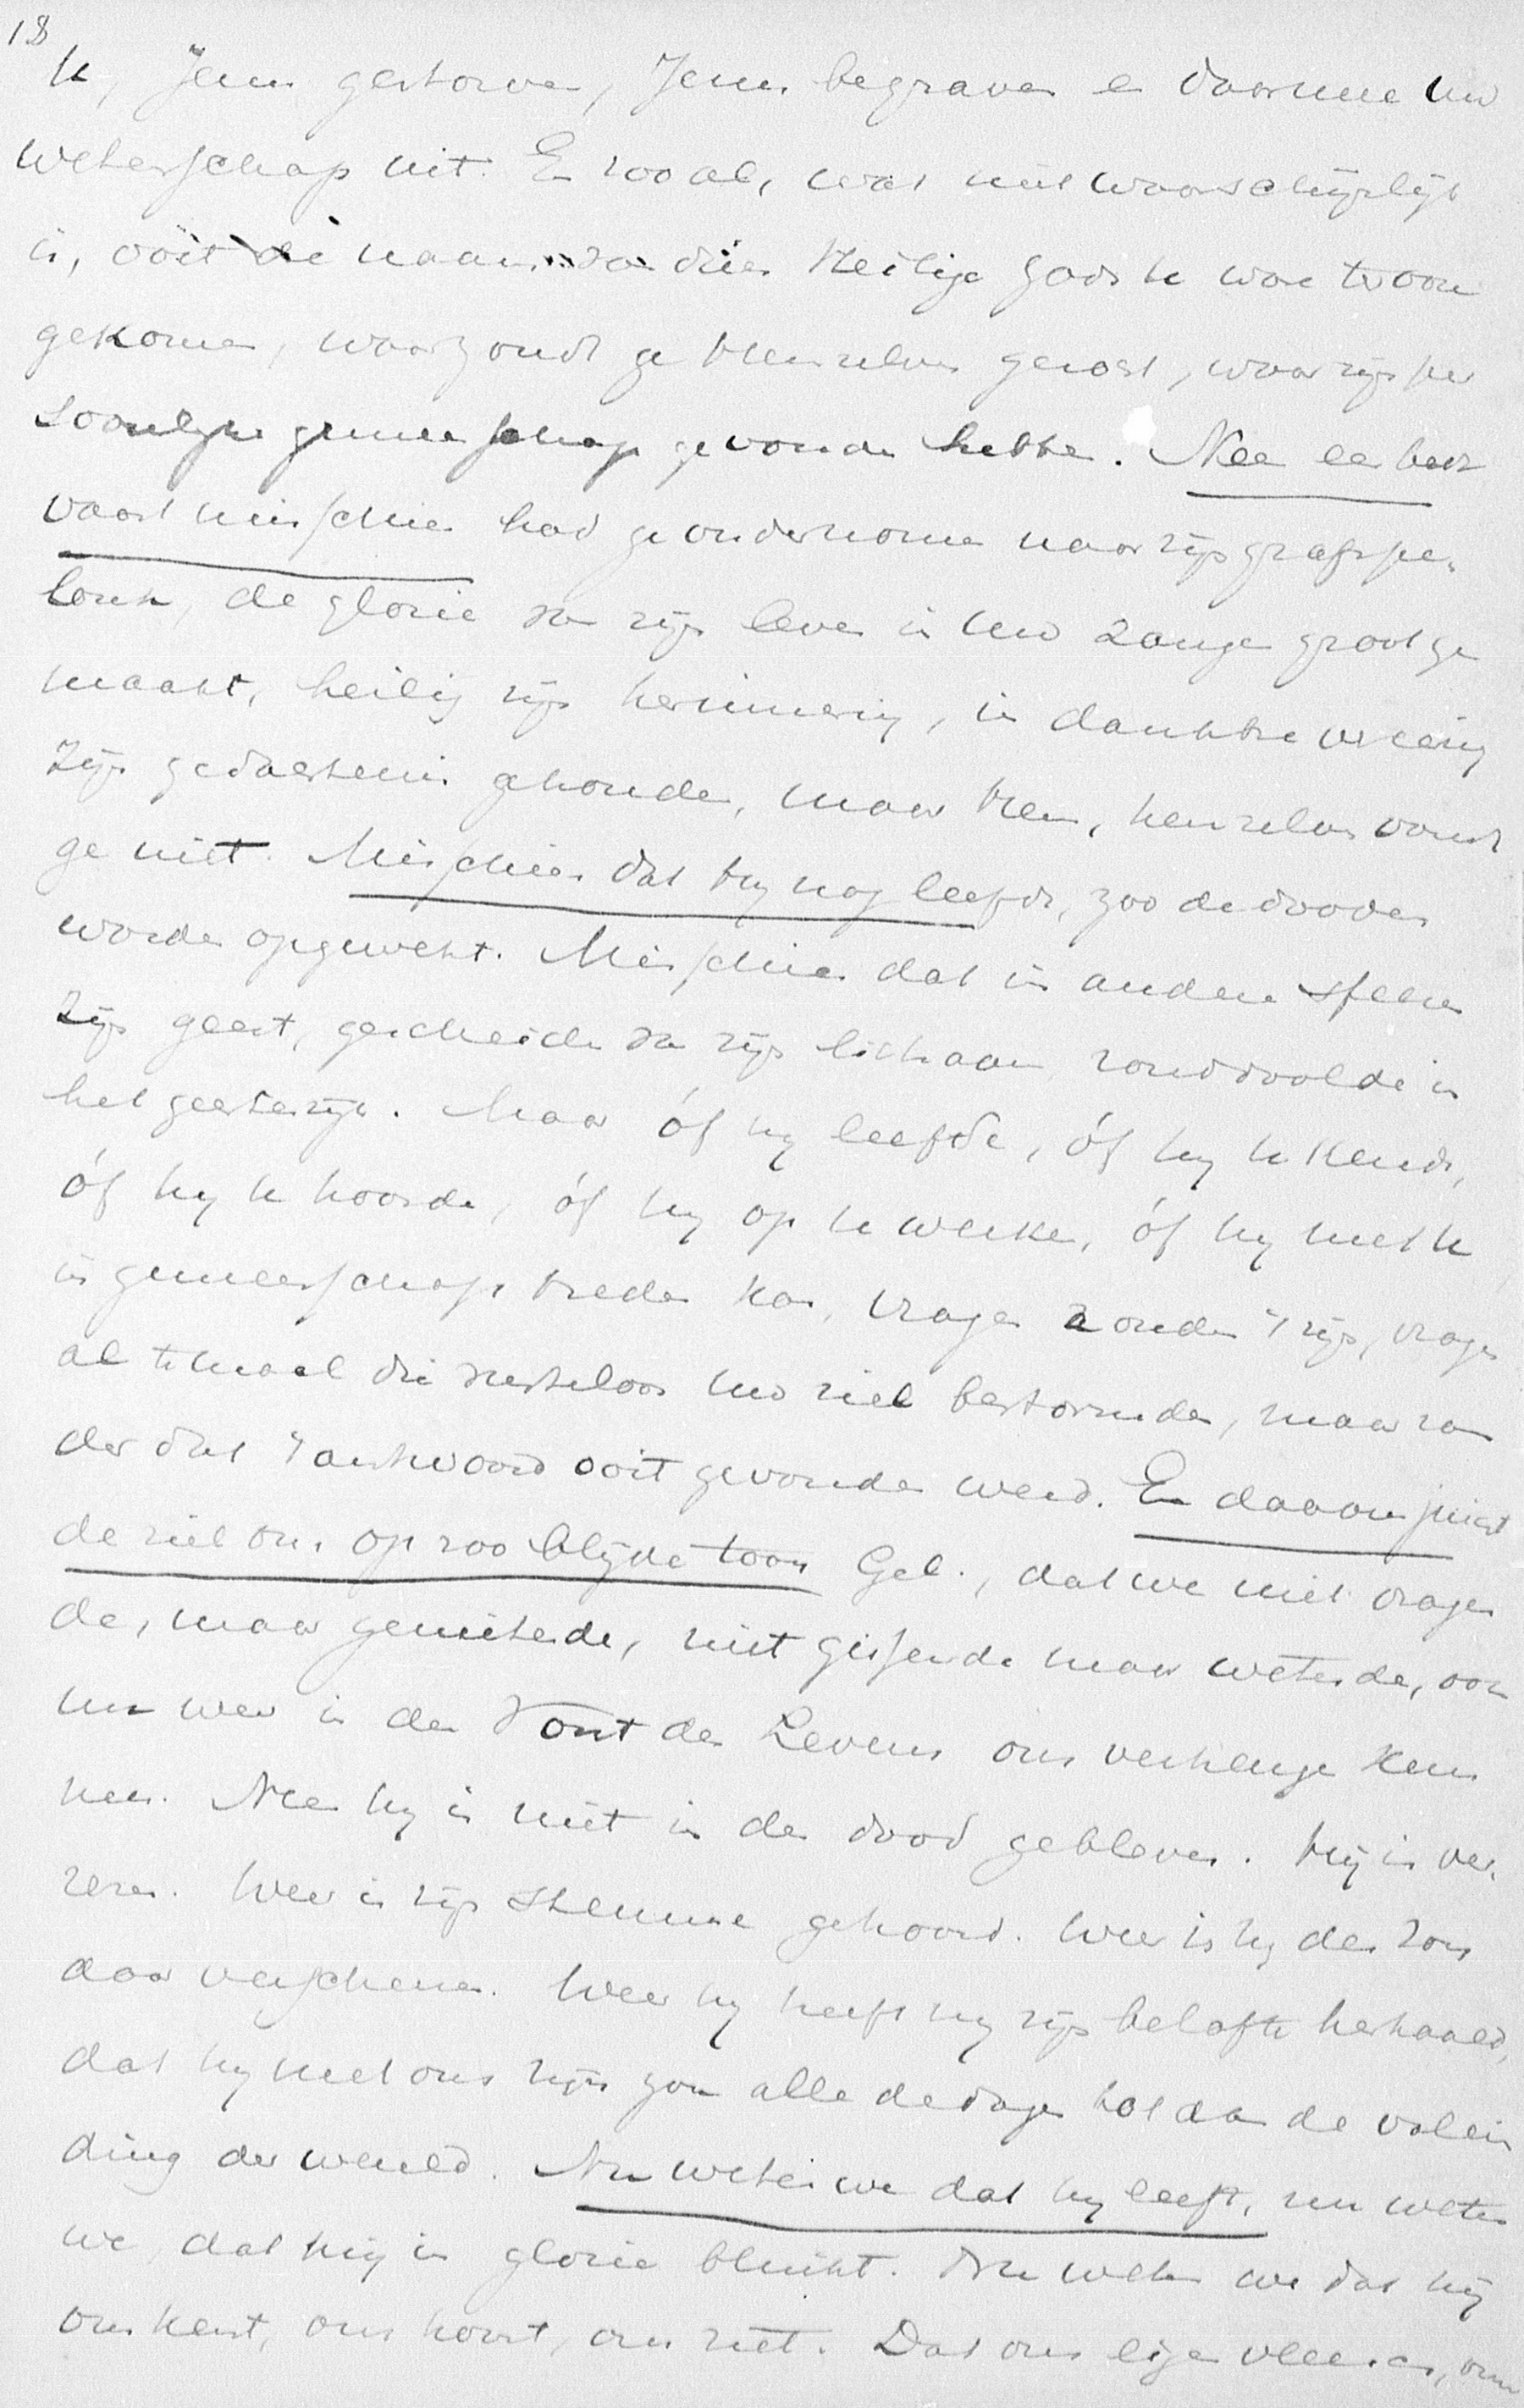 18
u, Jezus gestorven, Jezus begraven en daarmee uw
wetenschap uit. En zoo al, wat niet waarschijnlijk
is, ooit de naam van dien Heilige Gods tot u ware
gekomen, waar zoudt ge Hem zelven gezocht, waar zijn per
soonlijke gemeenschap gevonden hebben. Nee een bede
vaart misschien had ge ondernomen naar zijn grafspe-
lonk, de glorie van zijn leven in uw zangen groot ge
maakt, heilig zijn herinnering, in dankbre vereering
zijn gedachtenis gehouden, maar Hem, hem zelven vondt
ge niet. Misschien dat hij nog leefde, zoo de dooden
worden opgewekt. Misschien dat in andere sfeeren
zijn geest, gescheiden van zijn lichaam ronddoolde in
het geestenrijk. Maar óf hij leefde, óf hij u kende,
óf hij u hoorde, óf hij op u werken, óf hij met u
in gemeenschap treden kon, vragen zouden 't zijn, vragen
altemaal die rusteloos uw ziel bestormden, maar zon
der dat 't antwoord ooit gevonden werd. En daarom juicht
de ziel ons op zoo blijde toon Gel., dat we niet vragen
de, maar genietende, niet gissende maar wetende, ook
nu weer in den Vorst des Levens ons verheugen kun
nen. Nee hij is niet in den dood gebleven. Hij is ver-
rezen. Weer is zijn stemme gehoord. Weer is hij den zon
daar verschenen. Weer heeft hij zijn belofte herhaald,
dat hij met ons zijn zou alle de dagen tot aan de volein
ding der wereld. Nu weten we dat hij leeft, nu weten
we, dat hij in glorie blinkt. Nu weten we dat hij
ons kent, ons hoort, ons ziet. Dat ons eigen vleesch, ons